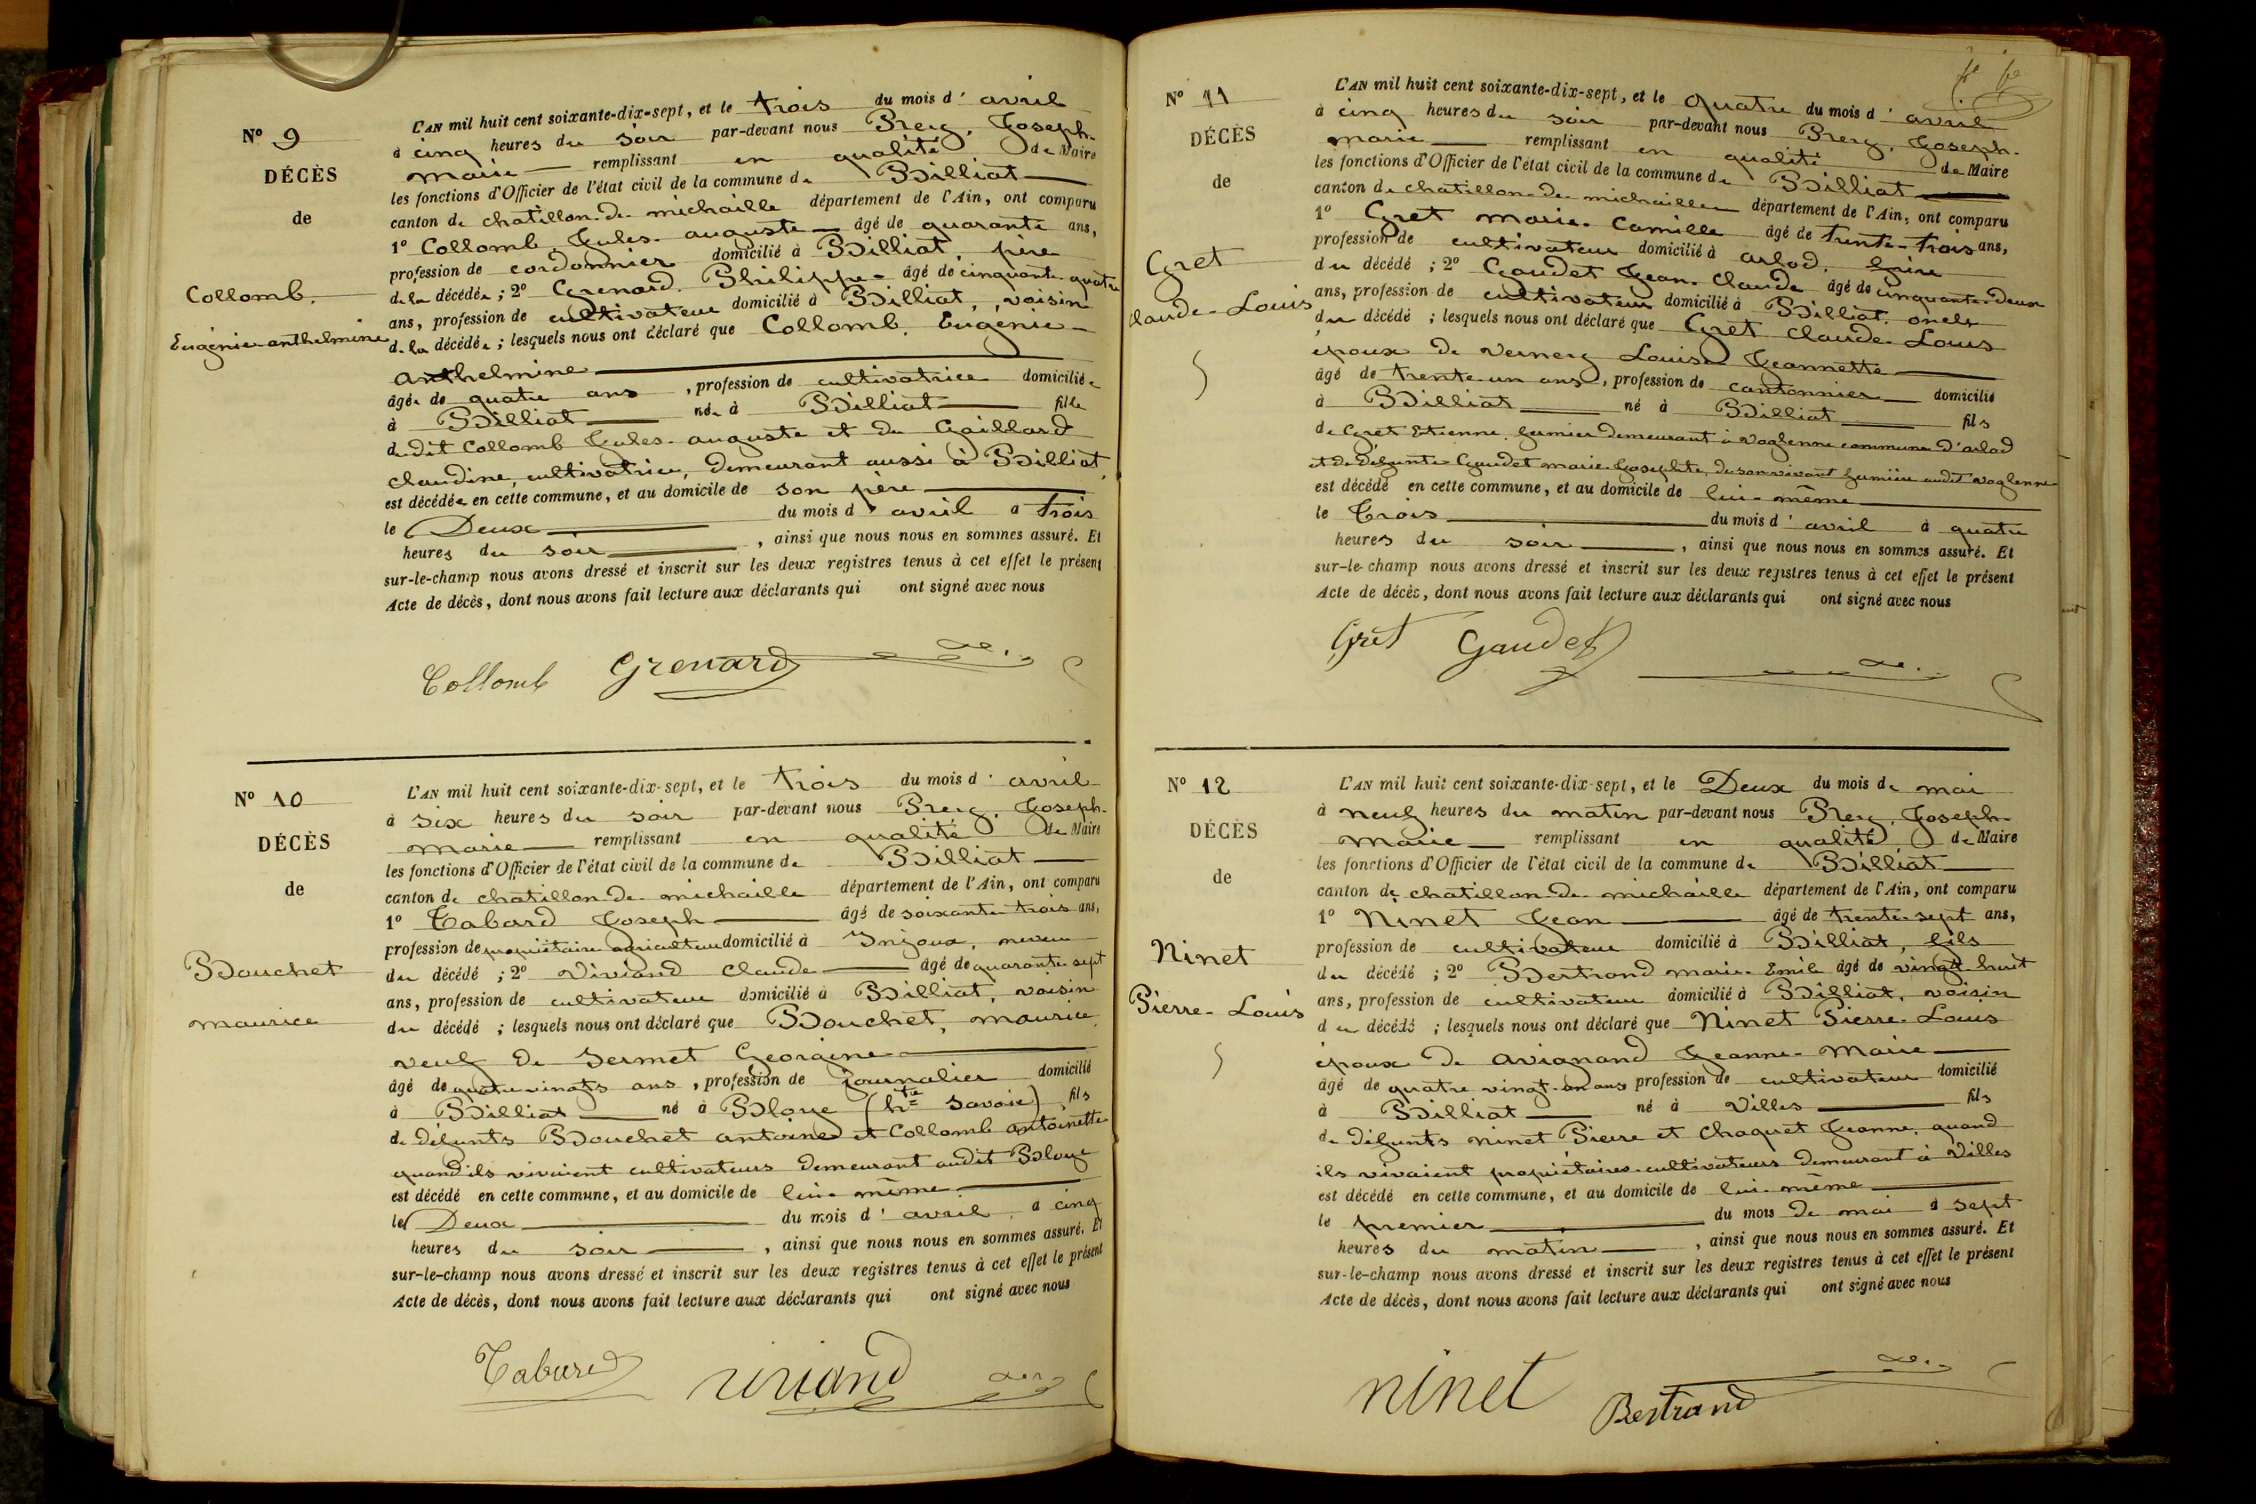 Nº 9
DÉCÈS
de
Collomb.
Eugénie-anthelmine
L'AN mil huit cent soixante-dix-sept, et le trois du mois d'avril
à cinq heures du soir par-devant nous Prery, Joseph-
marie remplissant en qualité de Maire
les fonctions d'Officier de l'état civil de la commune de Billiat
canton de chatillon-de-michaille département de l'Ain, ont comparu
1º Collomb, Jules-auguste âgé de quarante ans,
profession de cordonnier domicilié à Billiat, père
de la décédée; 2º Grenard Philippe âgé de cinquante quatre
ans, profession de cultivateur domicilié à Billiat, voisin
de la décédée; lesquels nous ont déclaré que Collomb, Eugénie-
anthelmine
âgée de quatre ans, profession de cultivatrice domiciliée
à Billiat née à Billiat fille
du dit Collomb Jules-auguste et de Gaillard
claudine, cultivatrice, demeurant aussi à Billiat,
est décédée en cette commune, et au domicile de son père
le Deux du mois d'avril à trois
heures du soir, ainsi que nous nous en sommes assuré. Et
sur-le-champ nous avons dressé et inscrit sur les deux registres tenus à cet effet le présent
Acte de décès, dont nous avons fait lecture aux déclarants qui ont signé avec nous
Collomb Grenard
Nº 10
DÉCÈS
de
Bouchet
maurice
L'AN mil huit cent soixante-dix-sept, et le trois du mois d'avril
à six heures du soir par-devant nous Prery, Joseph-
marie remplissant en qualité de Maire
les fonctions d'Officier de l'état civil de la commune de Billiat
canton de chatillon-de-michaille département de l'Ain, ont comparu
1º Tabard Joseph âgé de soixante trois ans,
profession de propriétaire agriculteur domicilié à Injoux, neveu
du décédé; 2º Viviand claude âgé de quarante sept
ans, profession de cultivateur domicilié à Billiat, voisin
du décédé; lesquels nous ont déclaré que Bouchet, maurice,
veuf de Sermet Georgine
âgé de quatre vingts ans, profession de journalier domicilié
à Billiat né à Bloye (hte Savoie) fils
de défunts Bouchet antoine et Collomb antoinette
quand ils vivaient cultivateurs demeurant audit Bloye
est décédé en cette commune, et au domicile de lui-même
le Deux du mois d'avril à cinq
heures du soir, ainsi que nous nous en sommes assuré. Et
sur-le-champ nous avons dressé et inscrit sur les deux registres tenus à cet effet le présent
Acte de décès, dont nous avons fait lecture aux déclarants qui ont signé avec nous
Tabard viviand
Nº 11
DÉCÈS
de
Gret
claude-Louis
L'AN mil huit cent soixante-dix-sept, et le quatre du mois d'avril
à cinq heures du soir par-devant nous Prery, Joseph-
marie remplissant en qualité de Maire
les fonctions d'Officier de l'état civil de la commune de Billiat
canton de chatillon-de-michaille département de l'Ain, ont comparu
1º Gret marie-Camille âgé de trente-trois ans,
profession de cultivateur domicilié à arlod, frère
du décédé; 2º Gaudet Jean-Claude âgé de cinquante-deux
ans, profession de cultivateur domicilié à Billiat, oncle
du décédé; lesquels nous ont déclaré que Gret claude-Louis
époux de Vernery Louise Jeannette
âgé de trente-un ans, profession de cantonnier domicilié
à Billiat né à Billiat fils
de Gret Etienne, fermier demeurant à Voglenne commune d'arlod
et de défunte Gaudet marie-Josephte, de son vivant fermière audit Voglenne
est décédé en cette commune, et au domicile de lui-même
le Trois du mois d'avril à quatre
heures du soir, ainsi que nous nous en sommes assuré. Et
sur-le-champ nous avons dressé et inscrit sur les deux registres tenus à cet effet le présent
Acte de décès, dont nous avons fait lecture aux déclarants qui ont signé avec nous
Gret Gaudet
Nº 12
DÉCÈS
de
Ninet
Pierre-Louis
L'AN mil huit cent soixante-dix-sept, et le Deux du mois de mai
à neuf heures du matin par-devant nous Prery, Joseph-
Marie remplissant en qualité de Maire
les fonctions d'Officier de l'état civil de la commune de Billiat
canton de chatillon-de-michaille département de l'Ain, ont comparu
1º Ninet Jean âgé de trente-sept ans,
profession de cultivateur domicilié à Billiat, fils
du décédé; 2º Bertrand marie-Emile âgé de vingt-huit
ans, profession de cultivateur domicilié à Billiat, voisin
du décédé; lesquels nous ont déclaré que Ninet Pierre-Louis
époux de avignand Jeanne-Marie
âgé de quatre vingt-un ans profession de cultivateur domicilié
à Billiat né à Villes fils
de défunts ninet Pierre et Chaquet Jeanne, quand
ils vivaient propriétaires-cultivateurs demeurant à Villes
est décédé en cette commune, et au domicile de lui-même
le premier du mois de mai à sept
heures du matin, ainsi que nous nous en sommes assuré. Et
sur-le-champ nous avons dressé et inscrit sur les deux registres tenus à cet effet le présent
Acte de décès, dont nous avons fait lecture aux déclarants qui ont signé avec nous
ninet Bertrand